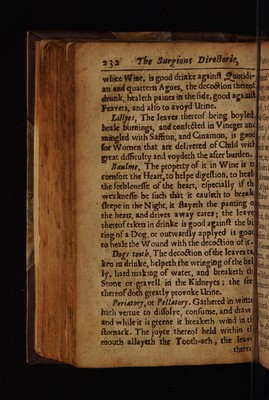 232 The Surgions Directorie,
white Wine, is good drinke against Quotidi-
an and quartern Agues, the decoction thereof
drunk, healeth paines in the side, good against
Feavers, and also to avoyd Urine.
Lillyes, The leaves thereof being boyled,
heale burnings, and confected in Vineger and
mingled with Saffron, and Cinamon, is good
for Women that are delivered of Child with
great difficulty and voydeth the after burden.
Baulme, The property of it in Wine is to
comfort the Heart, to helpe digestion, to heale
the feeblenesse of the heart, especially if the
weaknesse be such that it causeth to break
sleepe in the Night, it stayeth the panting of
the heart, and drives away cares; the leave
thereof taken in drinke is good against the bi
ting of a Dog, or outwardly applyed is good
to heale the Wound with the decoction of it.
Dogs tooth, The decoction of the leaves ta
ken in drinke, helpeth the wringing of the bel
ly, hard making of water, and breaketh the
Stone or gravell in the Kidneyes; the
thereof doth greatly provoke Urine.
Periatory, or Pellatory. Gathered in winter
hath vertue to dissolve, consume, and draw
and while it is greene it breaketh wind in th
stomack. The joyce thereof held within th
mouth allayeth the Tooth-ach, the leave
thereo